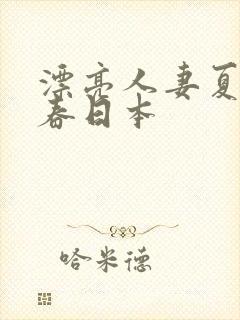 漂亮人妻夏
春日本
哈米德